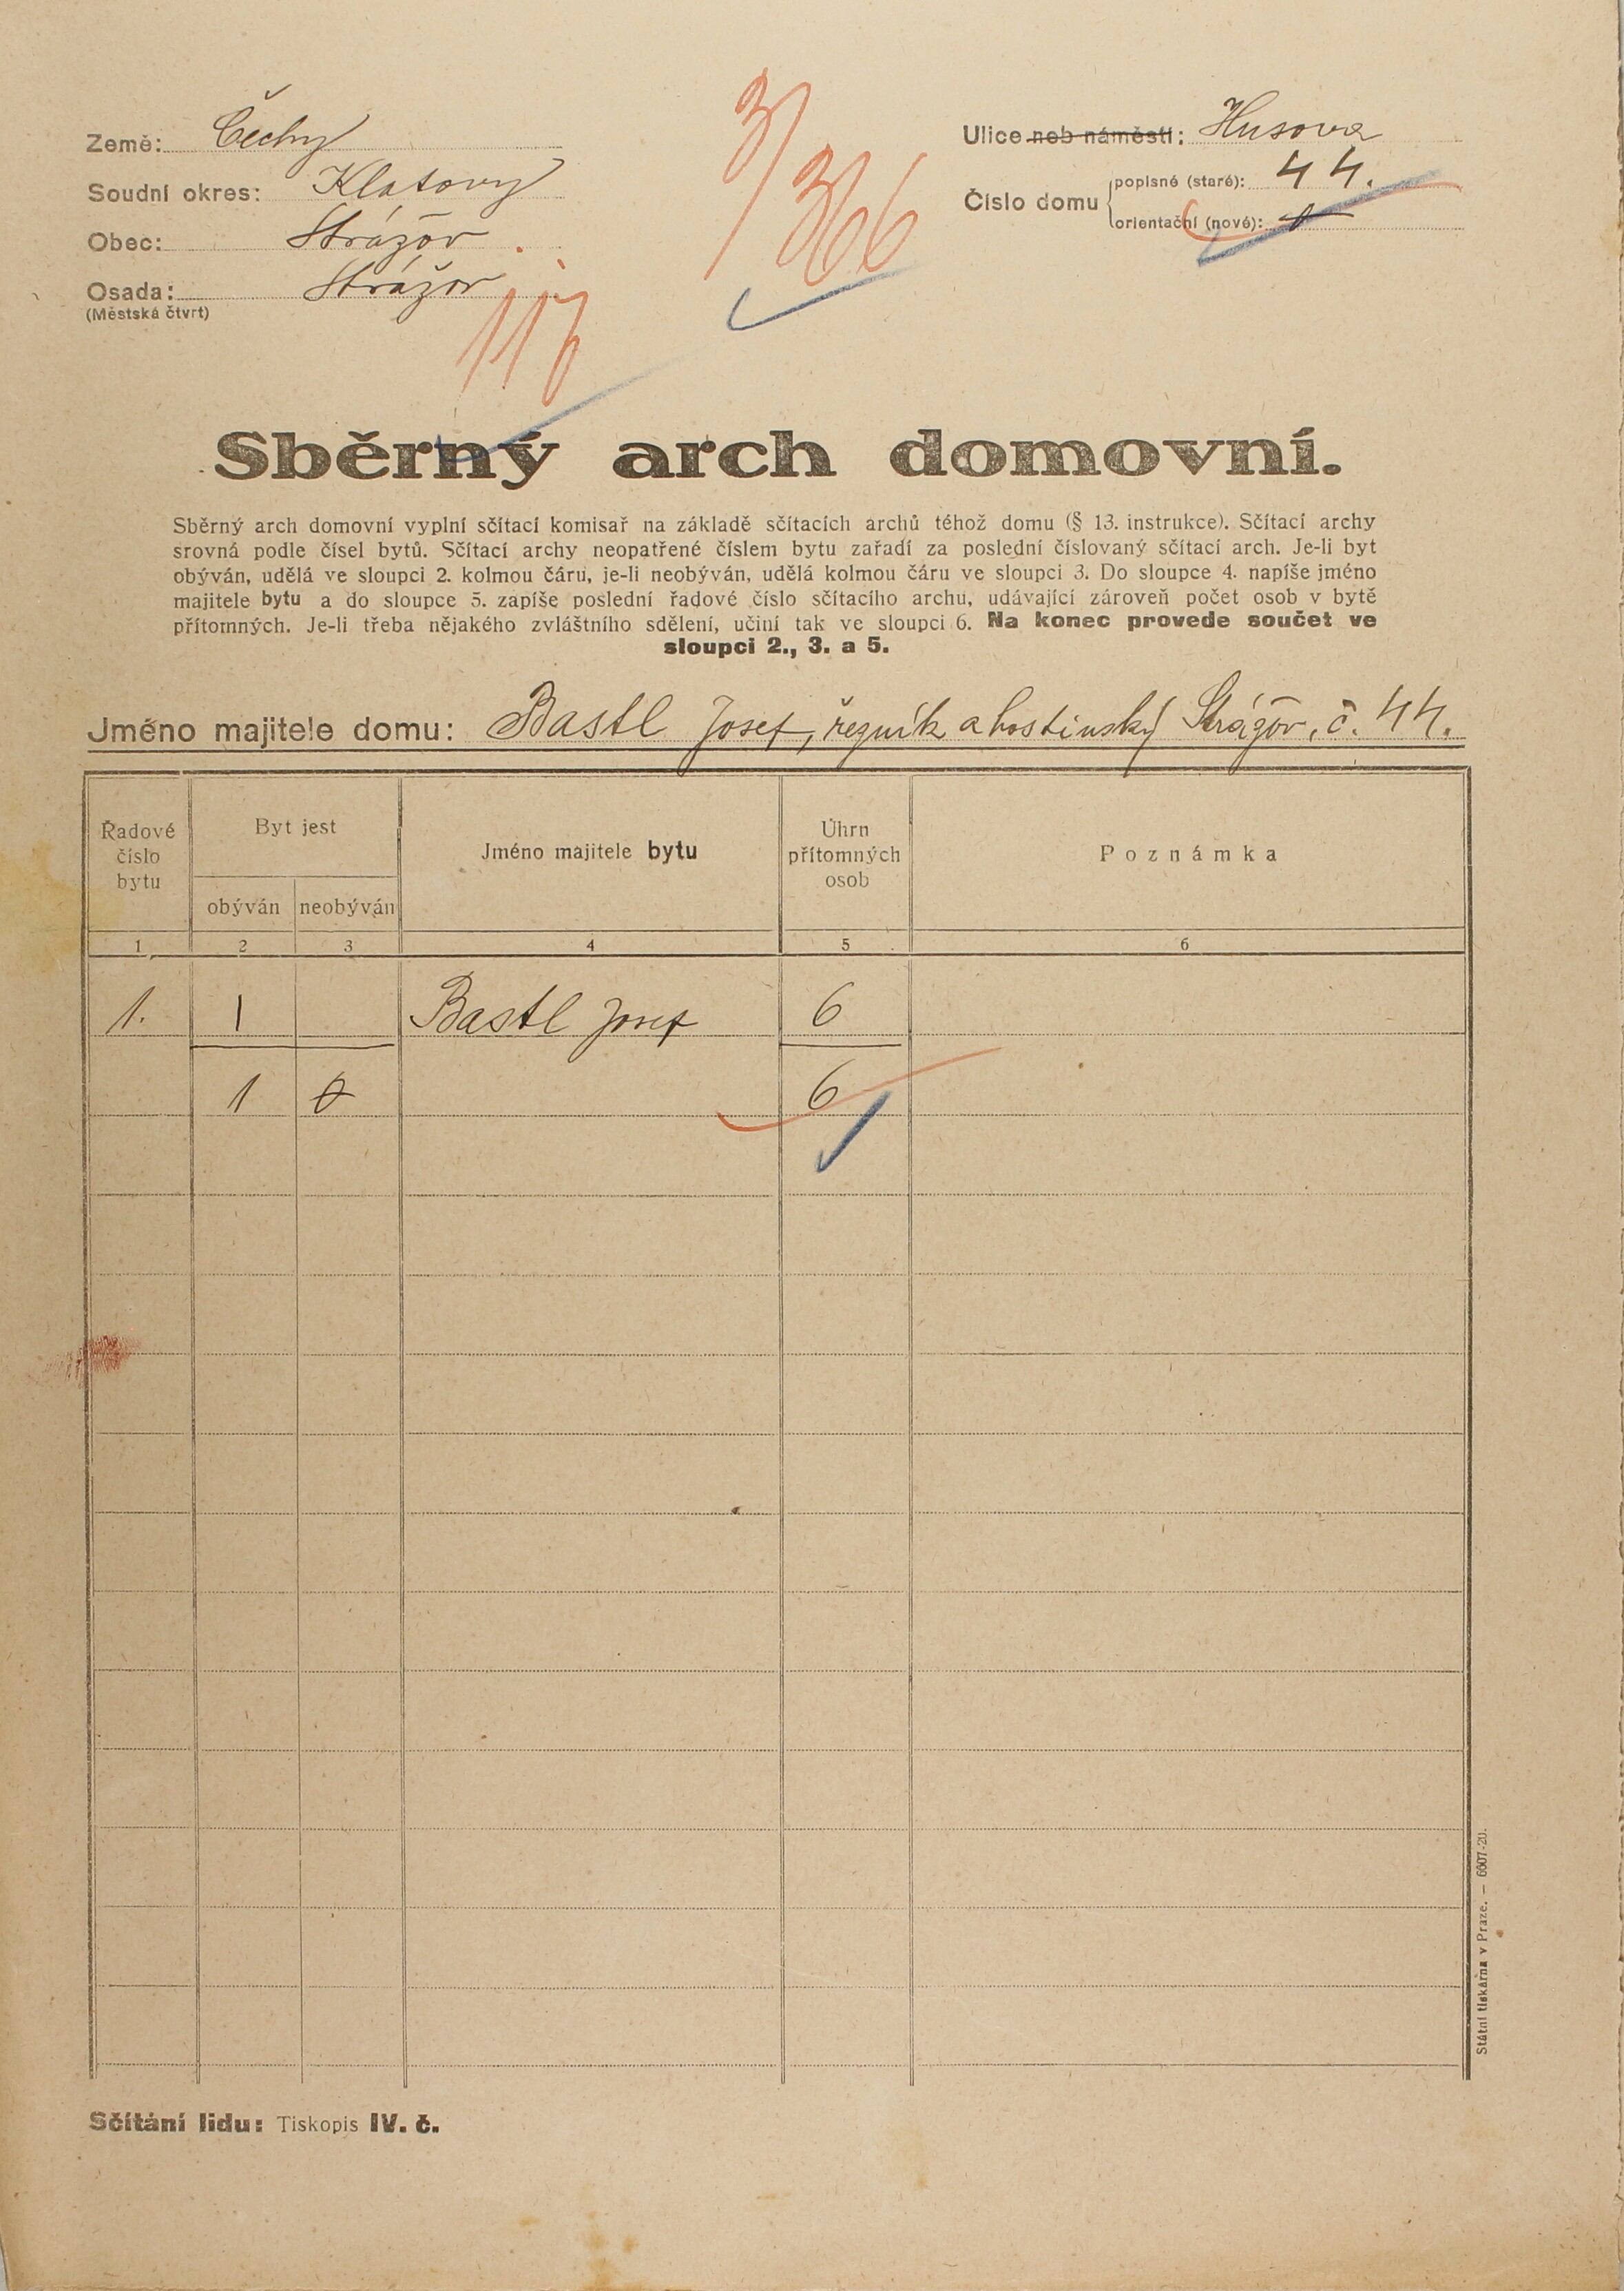 Země: Čechy
Soudní okres: Klatovy
Obec: Strážov
Osada: Strážov
(Městská čtvrt)
3/366
117
Ulice neb náměstí: Husova
Číslo domu
popisné (staré): 44.
orientační (nové):
Sběrný arch domovní.
Sběrný arch domovní vyplní sčítací komisař na základě sčítacích archů téhož domu (§ 13. instrukce). Sčítací archy
srovná podle čísel bytů. Sčítací archy neopatřené číslem bytu zařadí za poslední číslovaný sčítací arch. Je-li byt
obýván, udělá ve sloupci 2. kolmou čáru, je-li neobýván, udělá kolmou čáru ve sloupci 3. Do sloupce 4. napíše jméno
majitele bytu a do sloupce 5. zapíše poslední řadové číslo sčítacího archu, udávající zároveň počet osob v bytě
přítomných. Je-li třeba nějakého zvláštního sdělení, učiní tak ve sloupci 6. Na konec provede součet ve
sloupci 2., 3. a 5.
Jméno majitele domu: Bastl Josef, řezník a hostinský Strážov, č. 44.
Řadové číslo bytu
Byt jest
obýván
neobýván
Jméno majitele bytu
Úhrn přítomných osob
Poznámka
1 2 3 4 5 6
1. 1 Bastl Josef 6
1 0 6
Státní tiskárna v Praze. — 6607-20.
Sčítání lidu: Tiskopis IV. č.